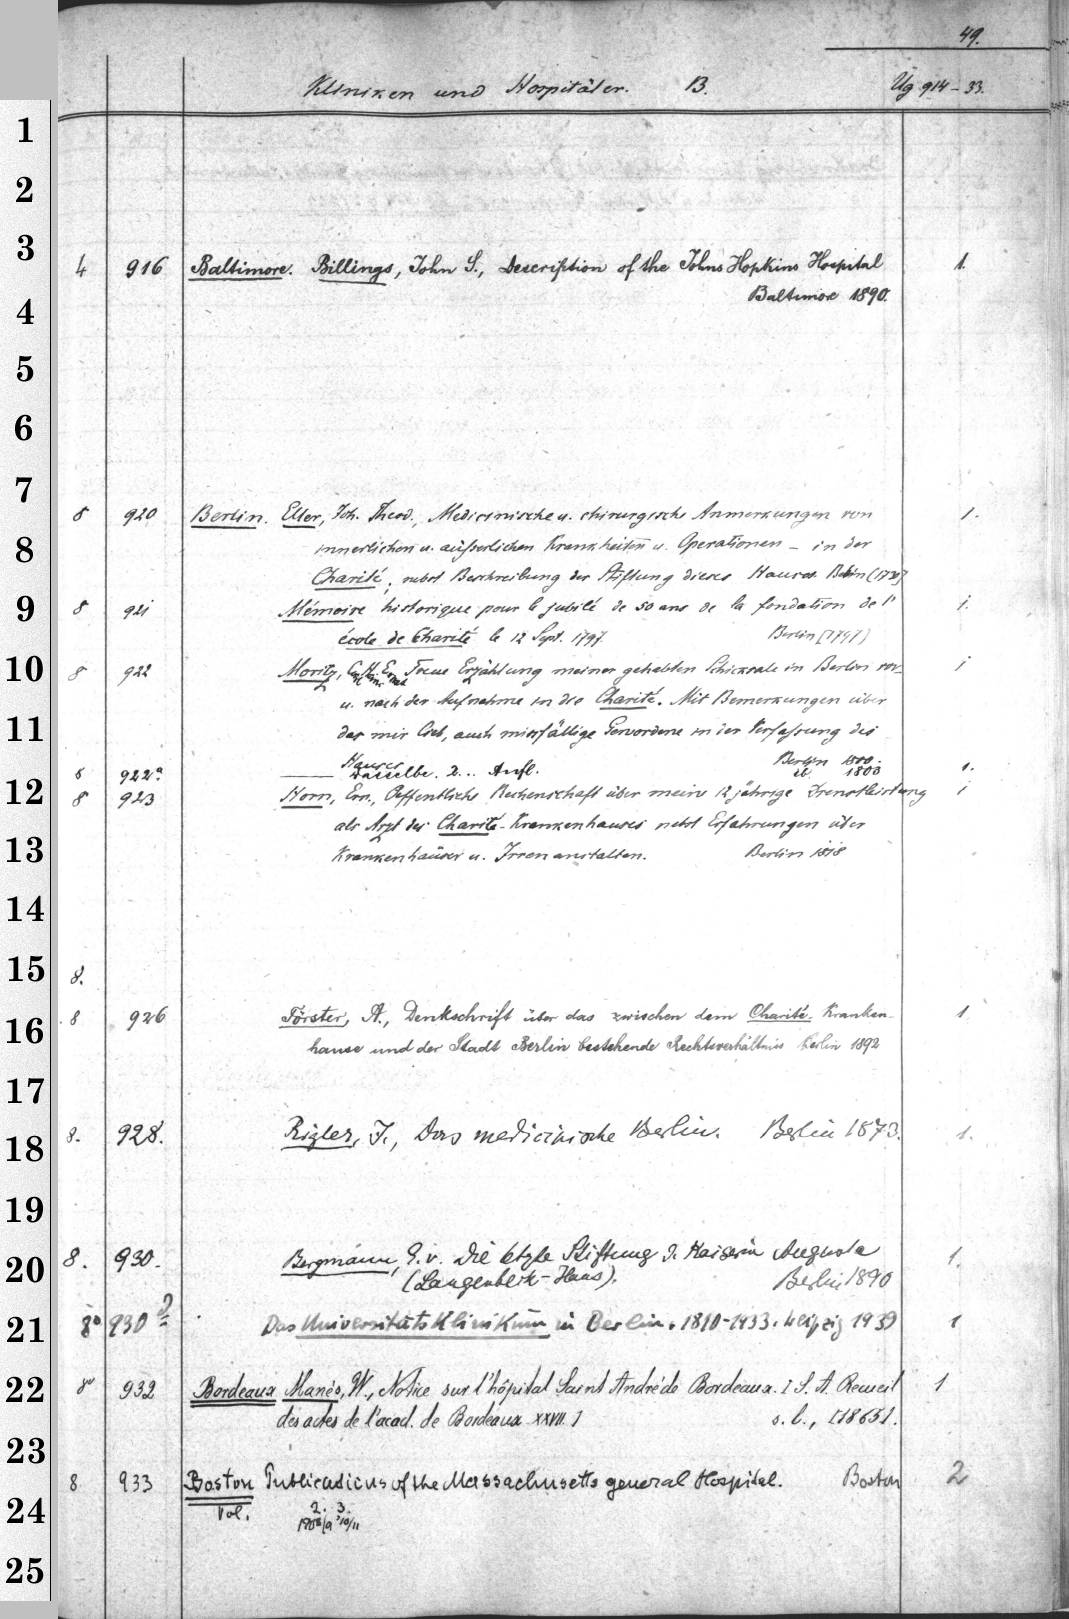 49.
Kliniken und Hospitäler. B. Ug 914-33.
1
2
3
4 916 Baltimore. Billings, John S., Description of the Johns Hopkins Hospital 1.
Baltimore 1890.
4
5
6
7
8 920 Berlin. Eller, Joh. Theod., Medicinische u. chirurgische Anmerkungen von 1.
8
innerlichen u. äusserlichen Krankheiten u. Operationen - in der
Charité, nebst Beschreibung der Stiftung dieses Hauses. Berlin (1730)
9
8 921 Mémoire historique pour le jubilé de 50 ans de la fondation de l' 1.
école de Charité le 12 Sept. 1797 Berlin (1797)
10
8 922 Moritz, Treue Erzählung meiner gehabten Schicksale in Berlin vor- 1
u. nach der Aufnahme in die Charité. Mit Bemerkungen über
11
das mir Lieb, auch missfällige Gewordene in der Verfassung des
Hauses Berlin 1800.
8 922a Dasselbe. 2.. Aufl. ib. 1803 1.
12
8 923 Horn, Ern., Oeffentliche Rechenschaft über meine 12jährige Dienstleistung 1
als Arzt des Charité-Krankenhauses nebst Erfahrungen über
13
Krankenhäuser u. Irrenanstalten. Berlin 1818
14
15
8.
8 926 Förster, A., Denkschrift über das zwischen dem Charité-Kranken- 1
16
hause und der Stadt Berlin bestehende Rechtsverhältnis Berlin 1892
17
8. 928. Rigler, J., Das medicinische Berlin. Berlin 1873. 1.
18
19
8. 930. Bergmann, E. v. Die letzte Stiftung d. Kaiserin Augusta 1.
20
(Langenbeck-Haus). Berlin 1890
21
8° 930 a Das Universitäts Klinikum in Berlin. 1810-1933. Leipzig 1939 1
22
8° 932 Bordeaux Manès, W., Notice sur l'hôpital Saint André de Bordeaux. [S. A. Recueil 1
des actes de l'acad. de Bordeaux XXVII.] s. l., [1865].
23
8 933 Boston Publications of the Massachusetts general Hospital. Boston 2
24
Vol. 2. 3.
1908/9 '10/11
25